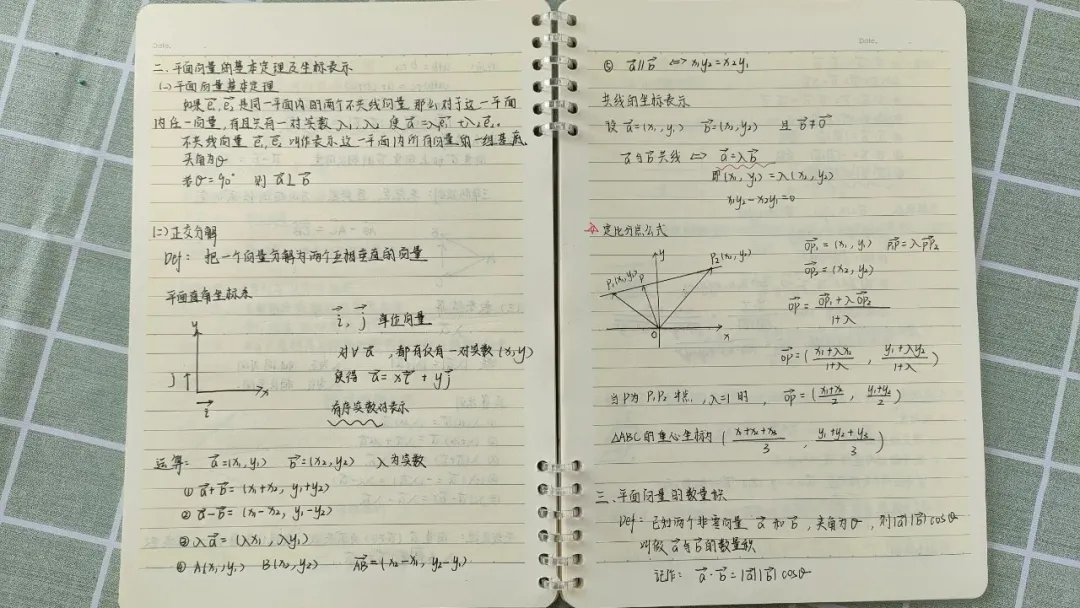 Date.
二、平面向量的基本定理及坐标表示
(一)平面向量基本定理
如果e₁,e₂是同一平面内的两个不共线向量,那么对于这一平面
内任一向量,有且只有一对实数λ₁,λ₂ 使a⃗=λ₁e⃗₁+λ₂e⃗₂
不共线向量 e⃗₁ e⃗₂ 叫作表示这一平面内所有向量的一组基底
夹角为θ
若θ=90° 则 a⃗⊥b⃗
(二)正交分解
Def: 把一个向量分解为两个互相垂直的向量
平面直角坐标系
y
j
x
i⃗
i⃗, j⃗ 单位向量
对∀ a⃗ ,都有仅有一对实数(x,y)
使得 a⃗=xi⃗+yj⃗
有序实数对表示
运算: a⃗=(x₁,y₁) b⃗=(x₂,y₂) λ为实数
① a⃗+b⃗=(x₁+x₂, y₁+y₂)
② a⃗-b⃗=(x₁-x₂, y₁-y₂)
③ λa⃗=(λx₁,λy₁)
④ A(x₁,y₁) B(x₂,y₂) AB⃗=(x₂-x₁, y₂-y₁)
Date.
⑤ a⃗∥b⃗ ⇔ x₁y₂=x₂y₁
共线的坐标表示
设 a⃗=(x₁,y₁) b⃗=(x₂,y₂) 且 b⃗≠0⃗
a⃗与b⃗共线 ⇔ a⃗=λb⃗
即(x₁,y₁)=λ(x₂,y₂)
x₁y₂-x₂y₁=0
☆ 定比分点公式
y
P₁(x₁,y₁)
P
P₂(x₂,y₂)
O
x
OP⃗₁=(x₁,y₁) P₁P⃗=λPP⃗₂
OP⃗₂=(x₂,y₂)
OP⃗=(OP⃗₁+λOP⃗₂)/(1+λ)
OP⃗=((x₁+λx₂)/(1+λ), (y₁+λy₂)/(1+λ))
当P为P₁P₂中点,λ=1时, OP⃗=((x₁+x₂)/2, (y₁+y₂)/2)
△ABC的重心坐标为((x₁+x₂+x₃)/3, (y₁+y₂+y₃)/3)
三、平面向量的数量积
Def: 已知两个非零向量 a⃗和b⃗,夹角为θ,则|a⃗||b⃗|cosθ
叫做a⃗与b⃗的数量积
记作: a⃗·b⃗=|a⃗||b⃗|cosθ